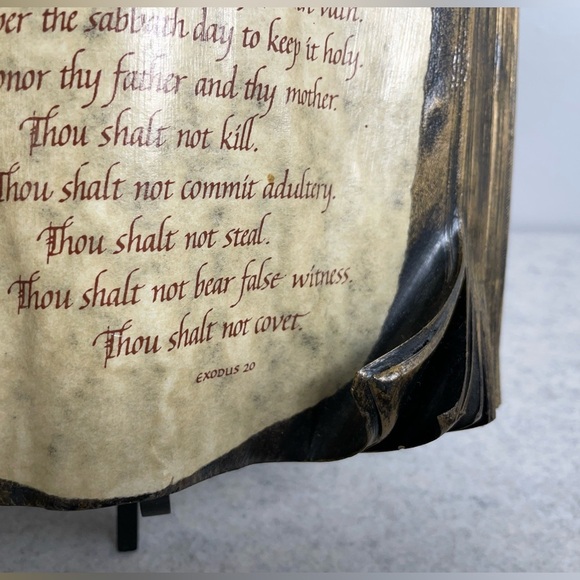 the sabbath day to keep it holy.
thy father and thy mother.
Thou shalt not kill.
Thou shalt not commit adultery.
Thou shalt not steal.
Thou shalt not bear false witness.
Thou shalt not covet.
EXODUS 20